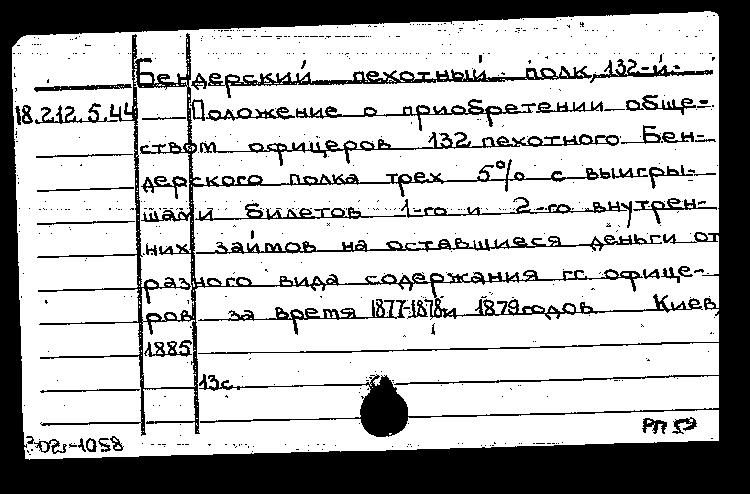 Бендерский пехотный полк, 132-й.
18.212.5.44 Положение о приобретении обще-
ством офицеров 132 пехотного Бен-
дерского полка трех 5% с выигры-
шами билетов 1-го и 2-го внутрен-
них займов на оставшиеся деньги от
разного вида содержания гг. офице-
ров за время 1877-1878 и 1879 годов Киев,
1885
13с.
РП 59